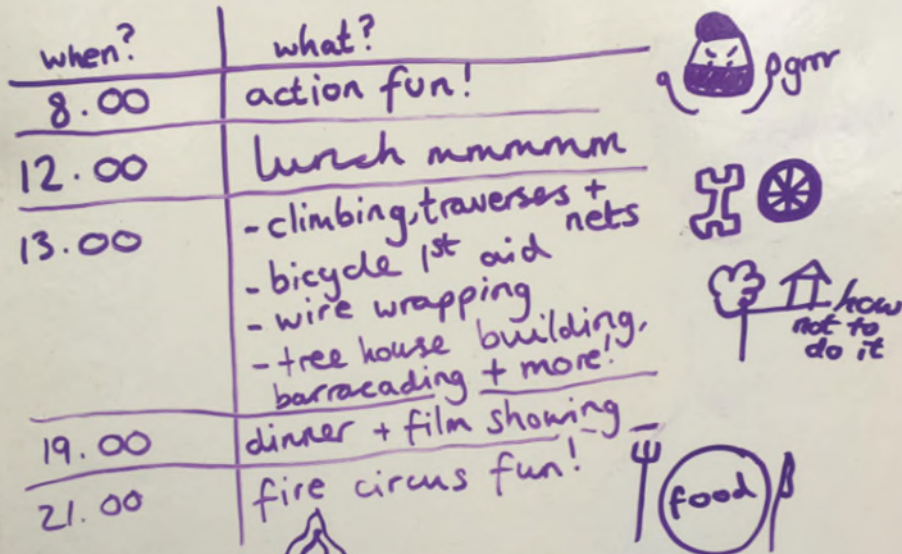 when? what?
8.00 action fun!
grrr
12.00 lunch mmmmm
13.00 -climbing, traverses +
nets
-bicycle 1st aid
-wire wrapping
-tree house building,
barracading + more!
how
not to
do it
19.00 dinner + film showing
21.00 fire circus fun!
food